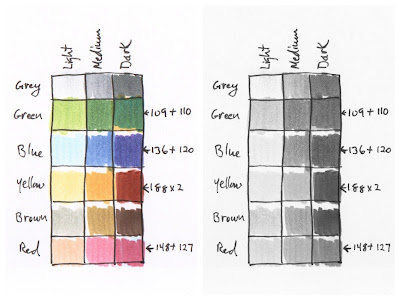 Light Medium Dark
Grey
Green ←109+110
Blue ←136+120
Yellow ←188x2
Brown
Red ←148+127
Light Medium Dark
Grey
Green ←109+110
Blue ←136+120
Yellow ←188x2
Brown
Red ←148+127